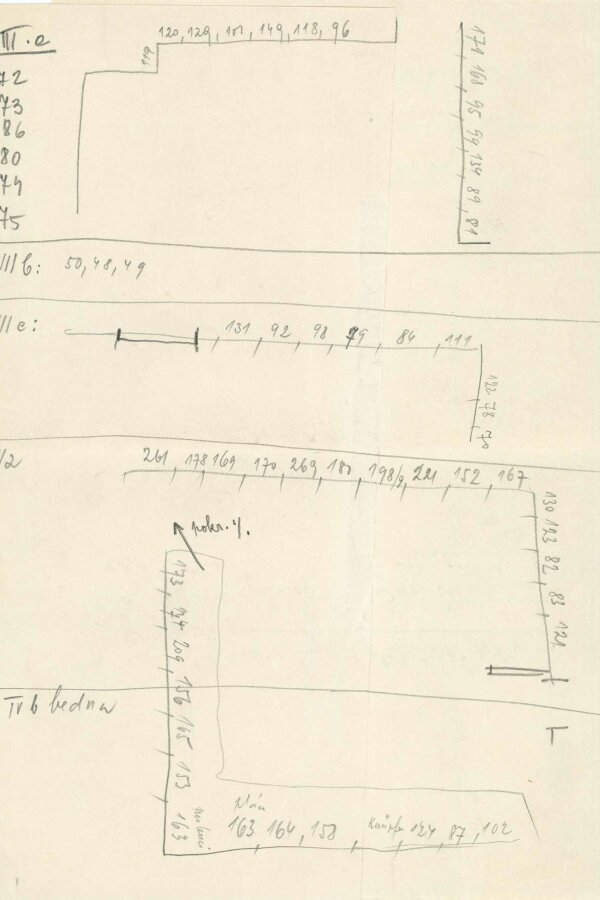 III.a
120, 129, 101, 149, 118, 96
119
72
73
86
80
74
75
171, 168, 95, 99, 134, 89, 81
III b: 50, 48, 49
III c:
131 92 98 79 84 111
122 78 70
261 178 169 170 269 180 198/9 221 152 167
130 123 82 83 121
pokr. %.
173, 137 209 156 165 153 163
IV b bedna
T
163 164, 158
124, 87, 102